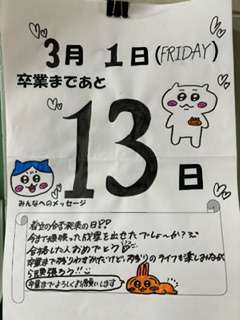 3月 1日(FRIDAY)
卒業まであと
13
日
みんなへのメッセージ
の合否発表の日??
今まで頑張った成果を出せたでしょ〜か??
合格した人おめでとう
卒業まで残りわずかだけど、残りのライフを楽しみながら
頑張ろう!!
卒業までよろしくお願いします